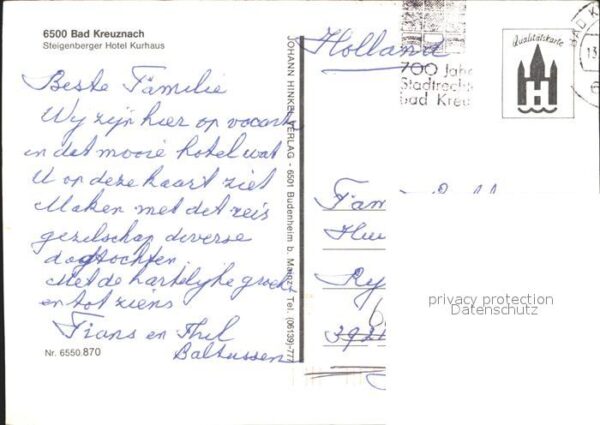 6500 Bad Kreuznach
Steigenberger Hotel Kurhaus
Beste Familie
Wij zijn hier op vacantie
in dat mooie hotel wat
U op deze kaart ziet
Maken met det reis
gezelschap diverse
dagtochten
Met de hartelijke groet
en tot ziens
Frans en Thil
Baltussen
Nr. 6550.870
JOHANN HINKEL VERLAG - 6501 Budenheim b. Mainz - Tel. (06139)-777
Holland
700 Jahre
Stadtrech
bad Kreu
Qualitätskarte
H
BAD K
13.
6
Fam
Ry
3921
privacy protection
Datenschutz